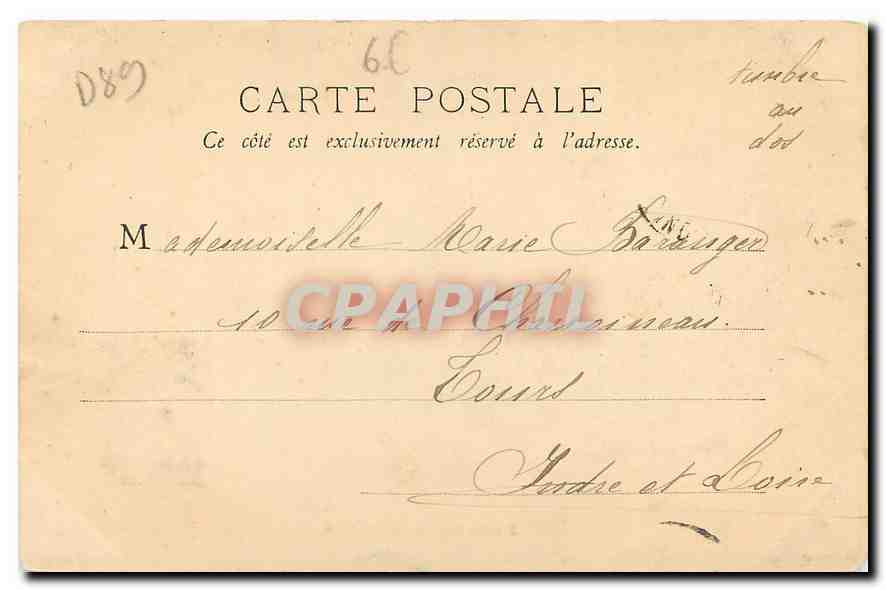 D89
6€
timbre
au
dos
CARTE POSTALE
Ce côté est exclusivement réservé à l'adresse.
Mademoiselle Marie Baranger
10 rue de Chamoineau.
Tours
Indre et Loire
CPAPHIL